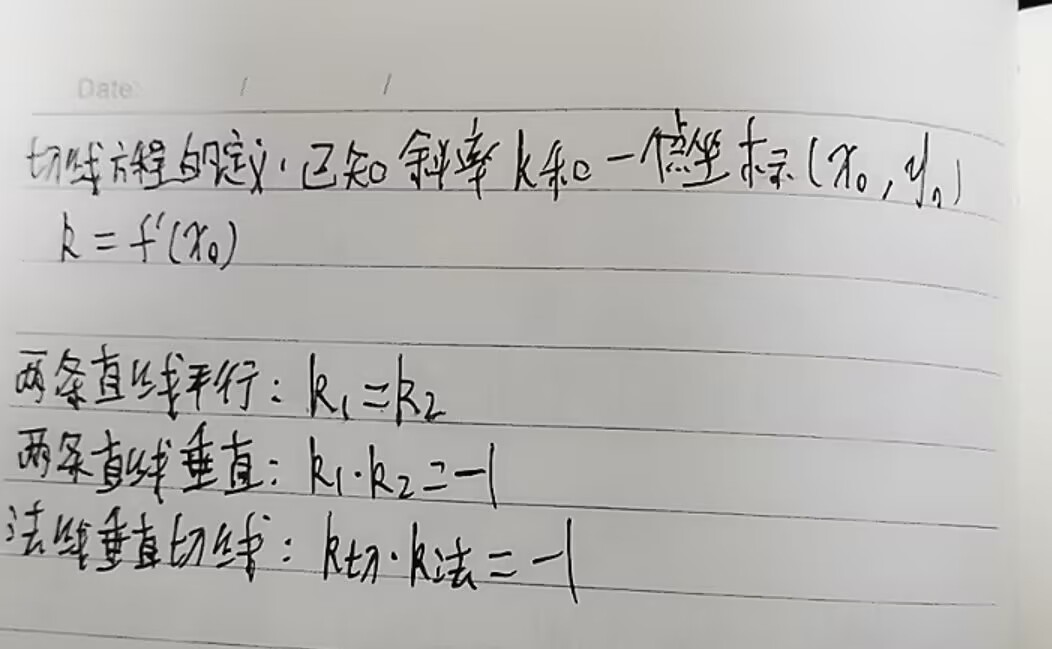 Date: / /
切线方程的定义.已知斜率k和一个点坐标(x₀,y₀)
k=f'(x₀)
两条直线平行:k₁=k₂
两条直线垂直:k₁·k₂=-1
法线垂直切线:k切·k法=-1